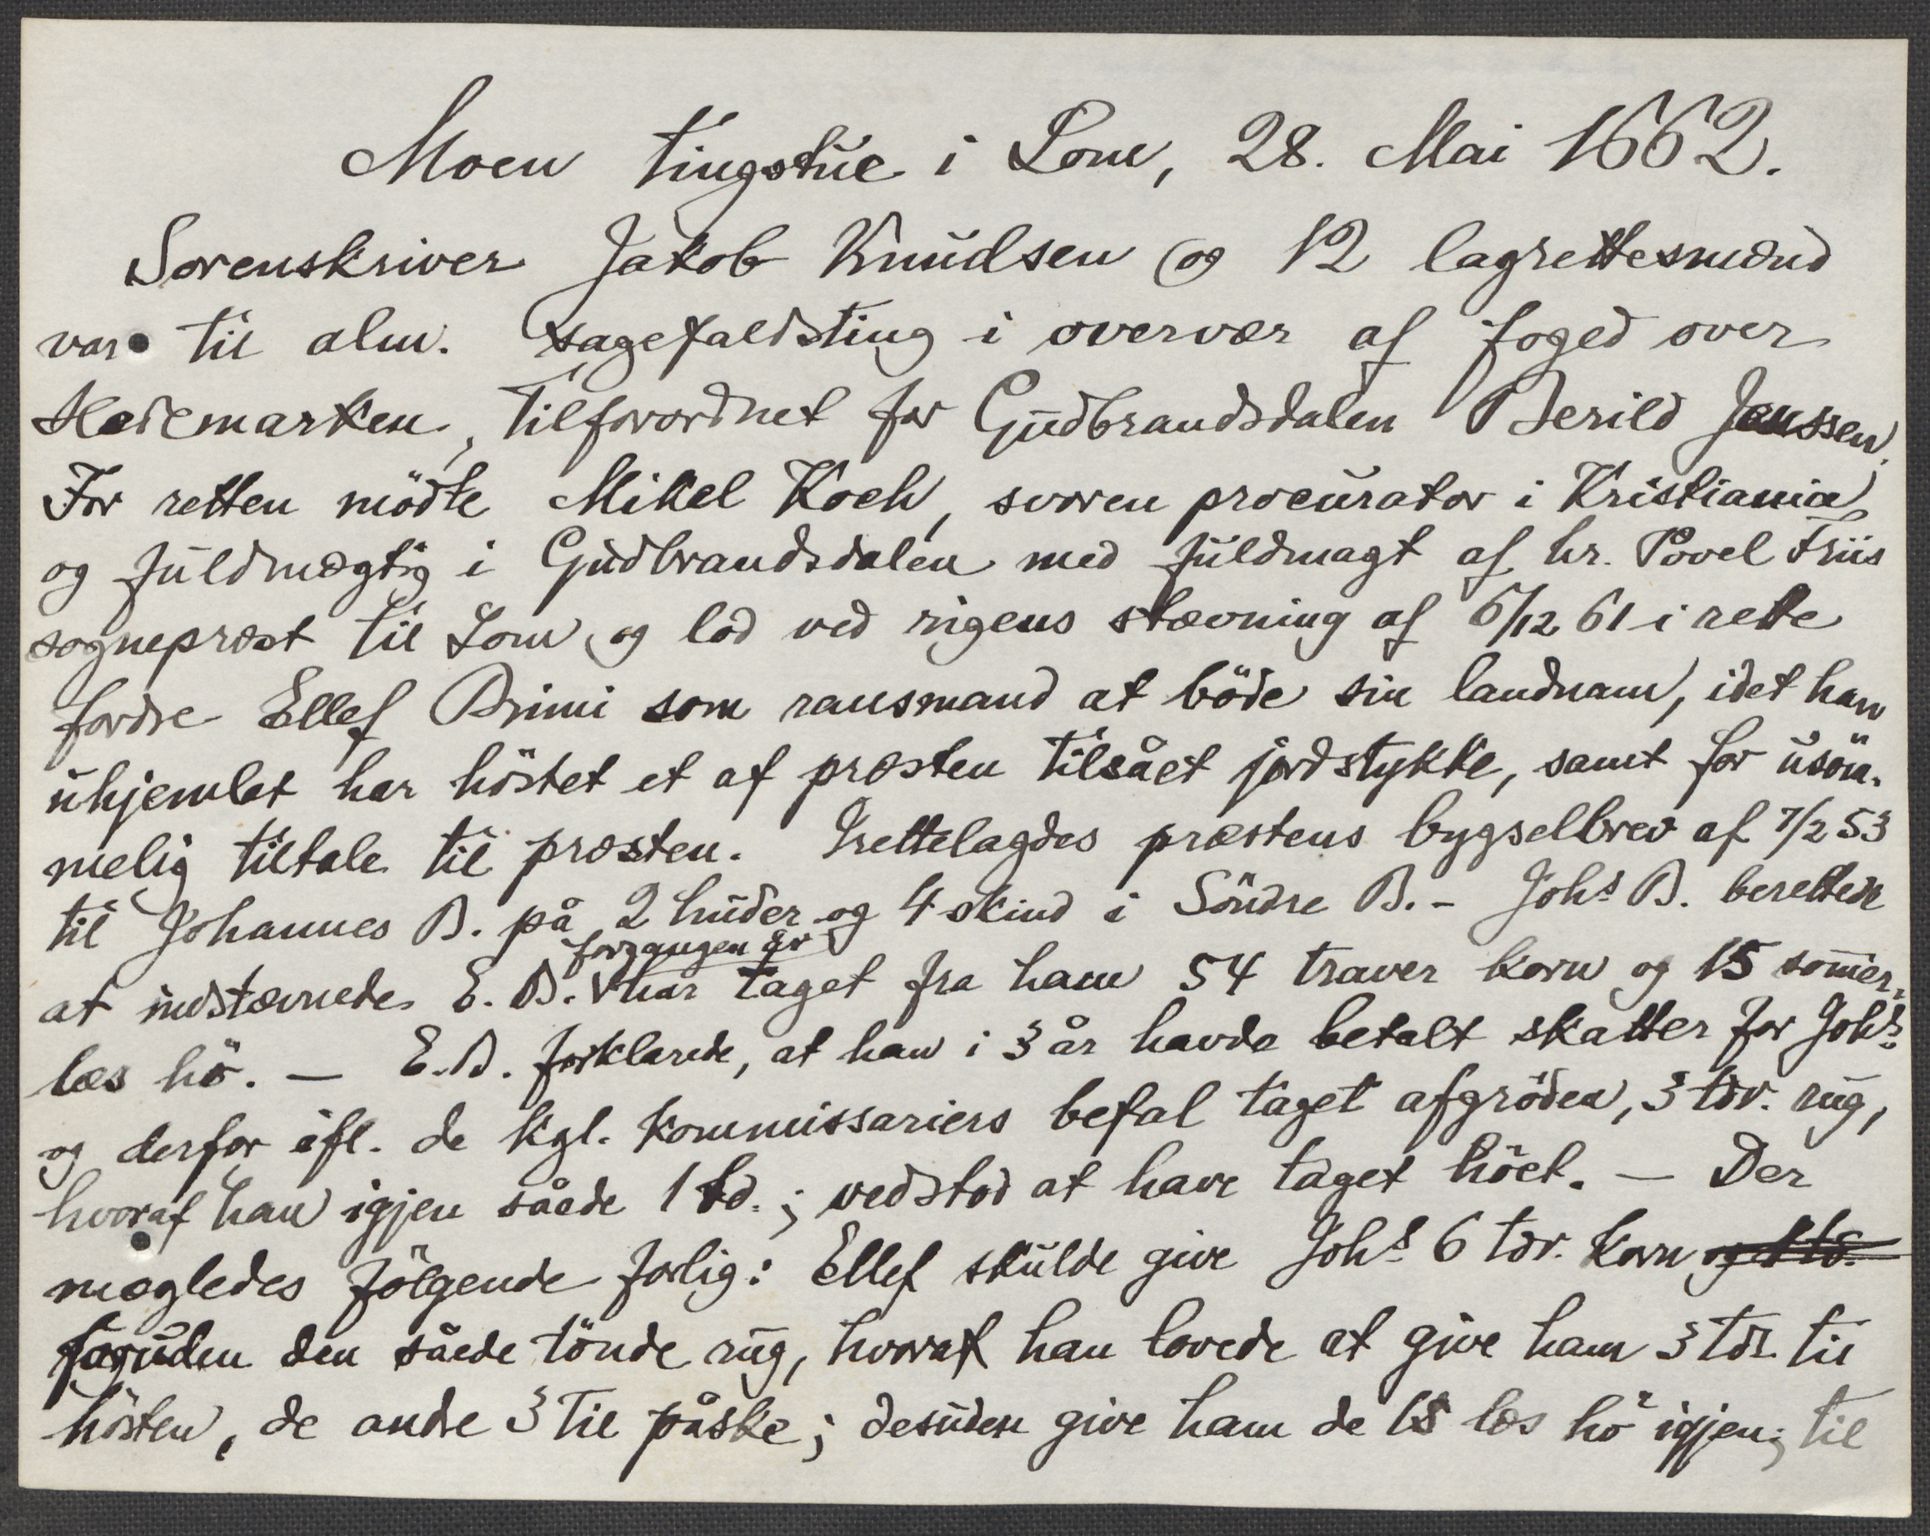 Moen tingstue i Lom, 28. Mai 1662.
Sorenskriver Jakob Knudsen og 12 lagrettesmænd
var til alm. sagefaldsting i overvær af foged over
Hedemarken, tilforordnet for Gudbrandsdalen Berild Jenssen.
For retten mödte Mikel Koch, svoren procurator i Kristiania
og fuldmægtig i Gudbrandsdalen med fuldmagt af hr. Povel Friis
sognepræst til Lom og lod ved rigens stævning af 6/12 61 i rette
fordre Ellef Brimi som ransmand at böde sin landnam, idet han
uhjemlet har höstet et af præsten tilsået jordstykke, samt for usöm-
melig tiltale til præsten. Irettelagdes præstens bygselbrev af 7/2 53
til Johannes B. på 2 huder og 4 skind i Söndre B. - Johs B. berettede
at indstævnede E. B. forgangen år har taget fra ham 54 traver korn og 15 sommer-
læs hö. — E. B. forklarede, at han i 3 år havde betalt skatter for Johs
og derfor ifl. de kgl. kommissariers befal taget afgröden, 3 tdr. rug,
hvoraf han igjen såede 1 td.; vedstod at have taget höet. — Der
mægledes fölgende forlig: Ellef skulde give Johs 6 tdr. korn og 1 td.
foruden den såede tönde rug, hvoraf han lovede at give ham 3 tdr. til
hösten, de andre 3 til påske; desuden give ham de 15 læs hö igjen; til